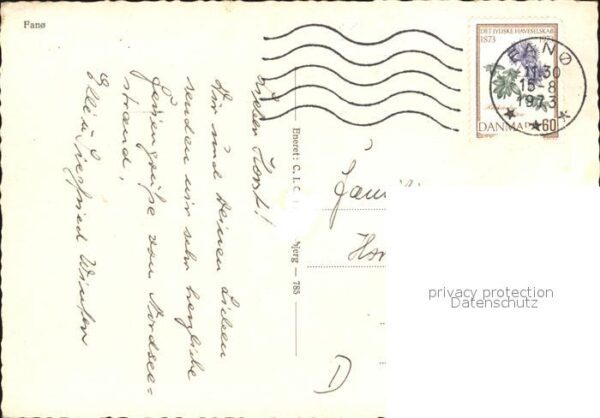 Fanø
DET JYDSKE HAVESELSKAB
1873 1973
FANØ
11.30
15-8
1973
DANMARK 60
Eneret: C. I. C. bjerg — 785
Lieber Horst!
Dir und Deinen Lieben
senden wir sehr herzliche
Feriengrüße vom Nordsee-
strand,
Elli u. Siegfried Winter
Famili
Hor
D
privacy protection
Datenschutz